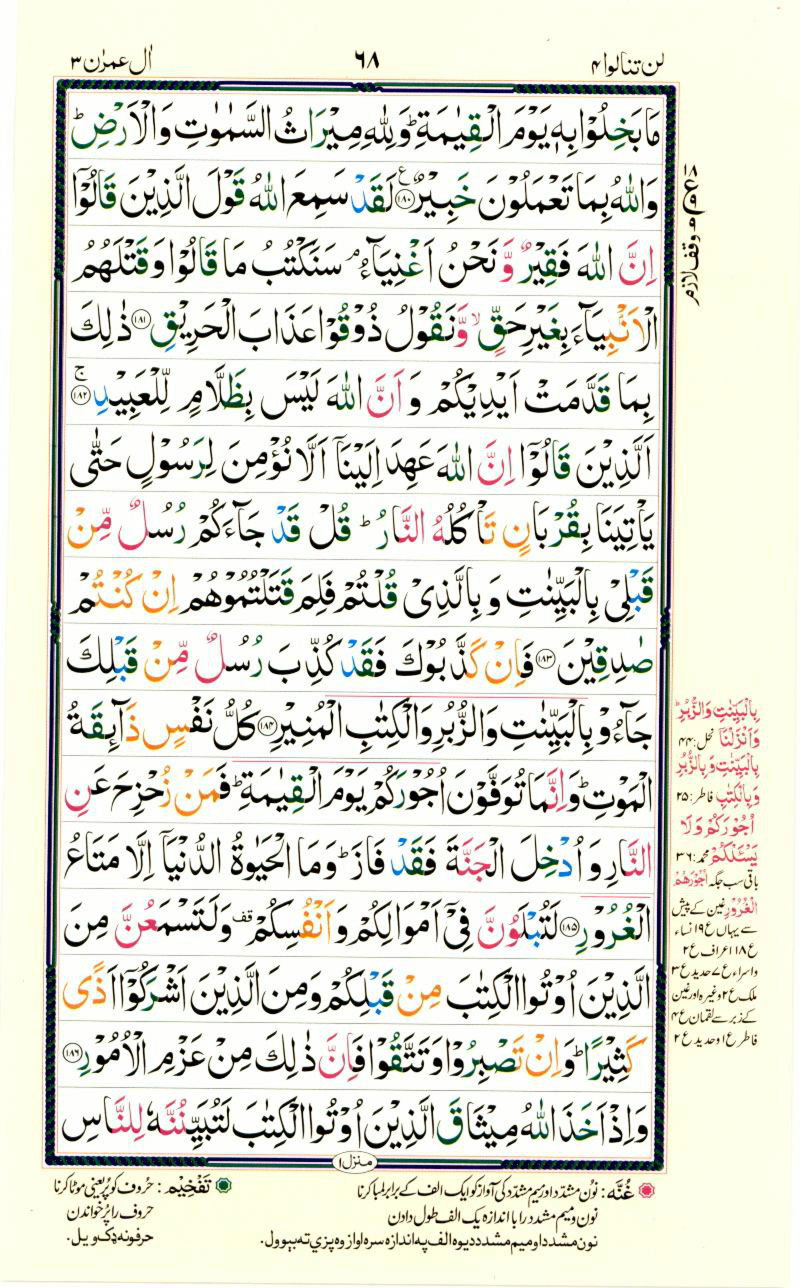 لن تنالوا ۴ ۶۸ اٰل عمرٰن ۳
مَا بَخِلُوْا بِهٖ يَوْمَ الْقِيٰمَةِ ؕ وَلِلّٰهِ مِيْرَاثُ السَّمٰوٰتِ وَالْاَرْضِ ؕ
وَاللّٰهُ بِمَا تَعْمَلُوْنَ خَبِيْرٌ ۧ ﴿۱۸۰﴾ لَقَدْ سَمِعَ اللّٰهُ قَوْلَ الَّذِيْنَ قَالُوْۤا
اِنَّ اللّٰهَ فَقِيْرٌ وَّنَحْنُ اَغْنِيَآءُ ۘ سَنَكْتُبُ مَا قَالُوْا وَقَتْلَهُمُ
الْاَنْۢبِيَآءَ بِغَيْرِ حَقٍّ ۙ وَّنَقُوْلُ ذُوْقُوْا عَذَابَ الْحَرِيْقِ ﴿۱۸۱﴾ ذٰلِكَ
بِمَا قَدَّمَتْ اَيْدِيْكُمْ وَاَنَّ اللّٰهَ لَيْسَ بِظَلَّامٍ لِّلْعَبِيْدِ ۚ ﴿۱۸۲﴾
اَلَّذِيْنَ قَالُوْۤا اِنَّ اللّٰهَ عَهِدَ اِلَيْنَاۤ اَلَّا نُؤْمِنَ لِرَسُوْلٍ حَتّٰى
يَاْتِيَنَا بِقُرْبَانٍ تَاْكُلُهُ النَّارُ ؕ قُلْ قَدْ جَآءَكُمْ رُسُلٌ مِّنْ
قَبْلِىْ بِالْبَيِّنٰتِ وَبِالَّذِىْ قُلْتُمْ فَلِمَ قَتَلْتُمُوْهُمْ اِنْ كُنْتُمْ
صٰدِقِيْنَ ﴿۱۸۳﴾ فَاِنْ كَذَّبُوْكَ فَقَدْ كُذِّبَ رُسُلٌ مِّنْ قَبْلِكَ
جَآءُوْ بِالْبَيِّنٰتِ وَالزُّبُرِ وَالْكِتٰبِ الْمُنِيْرِ ﴿۱۸۴﴾ كُلُّ نَفْسٍ ذَآئِقَةُ
الْمَوْتِ ؕ وَاِنَّمَا تُوَفَّوْنَ اُجُوْرَكُمْ يَوْمَ الْقِيٰمَةِ ؕ فَمَنْ زُحْزِحَ عَنِ
النَّارِ وَاُدْخِلَ الْجَنَّةَ فَقَدْ فَازَ ؕ وَمَا الْحَيٰوةُ الدُّنْيَاۤ اِلَّا مَتَاعُ
الْغُرُوْرِ ﴿۱۸۵﴾ لَتُبْلَوُنَّ فِىْۤ اَمْوَالِكُمْ وَاَنْفُسِكُمْ قف وَلَتَسْمَعُنَّ مِنَ
الَّذِيْنَ اُوْتُوا الْكِتٰبَ مِنْ قَبْلِكُمْ وَمِنَ الَّذِيْنَ اَشْرَكُوْۤا اَذًى
كَثِيْرًا ؕ وَاِنْ تَصْبِرُوْا وَتَتَّقُوْا فَاِنَّ ذٰلِكَ مِنْ عَزْمِ الْاُمُوْرِ ﴿۱۸۶﴾
وَاِذْ اَخَذَ اللّٰهُ مِيْثَاقَ الَّذِيْنَ اُوْتُوا الْكِتٰبَ لَتُبَيِّنُنَّهٗ لِلنَّاسِ
منزل ۱
وقف لازم
بِالْبَيِّنٰتِ وَالزُّبُرِ ؕ
وَاَنْزَلْنَا نحل : ۴۴
بِالْبَيِّنٰتِ وَبِالزُّبُرِ
وَبِالْكِتٰبِ فاطر : ۲۵
اُجُوْرَكُمْ وَلَا
يَسْـَٔلْكُمْ محمد : ۳۶
باقی سب جگہ اُجُوْرَهُمْ
الْغُرُوْرِ غین کے پیش
سے یہاں ع ۱۹ نساء
ع ۱۸ اعراف ع ۲
واسراء ع ۷ حدید ع ۳
ملک ع ۲ وغیرہ اور غین
کے زبر سے لقمان ع ۴
فاطر ع ۱ وحدید ع ۲
غُنَّه : نون مشدد اور میم مشدد کی آواز کو ایک الف کے برابر لمبا کرنا
نون و میم مشدد را با اندازه یک الف طول دادن
نون مشدد او میم مشدد د یوه الف په اندازه سره اواز وه پزې ته بېوول.
تَفْخِيْم : حروف کو پُر یعنی موٹا کرنا
حروف را پُر خواندن
حرفونه ډک ویل.